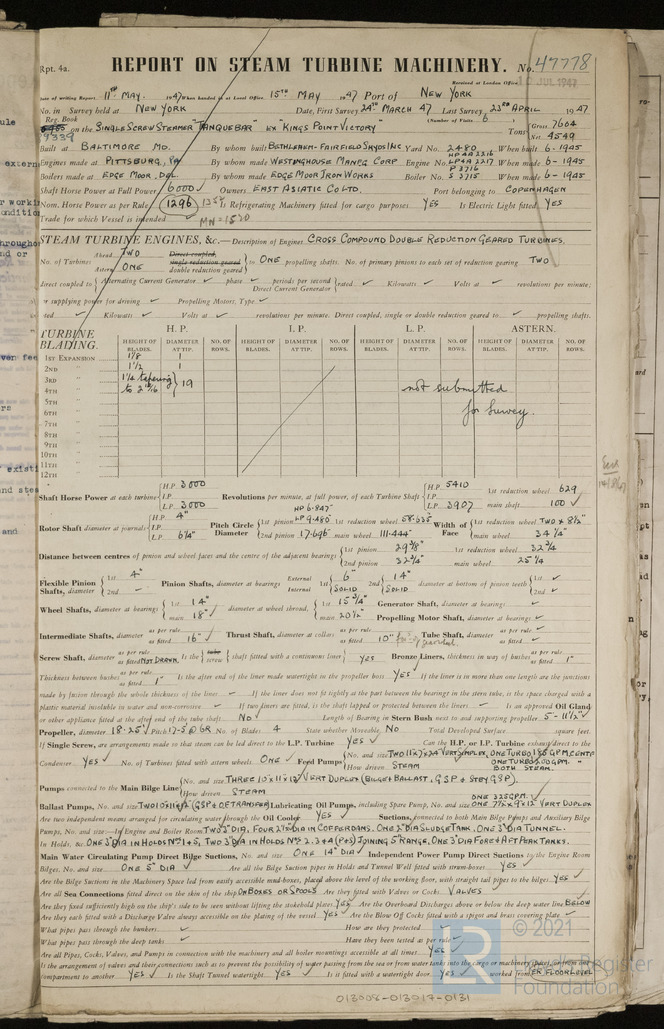 Rpt. 4a.
REPORT ON STEAM TURBINE MACHINERY. No. 47778
Received at London Office 12 JUL 1947
Date of writing Report 11th MAY. 1947 When handed in at Local Office 15TH MAY 1947 Port of NEW YORK
No. in Survey held at NEW YORK Date, First Survey 24TH MARCH 47 Last Survey 23RD APRIL 1947
Reg. Book (Number of Visits 6)
9339 on the SINGLE SCREW STEAMER "TANQUEBAR" EX "KINGS POINT VICTORY" Tons Gross 7604 Net 4549
Built at BALTIMORE MD. By whom built BETHLEHEM-FAIRFIELD SKYDS INC Yard No. 2480 When built 6-1945
Engines made at PITTSBURG, PA By whom made WESTINGHOUSE MANFG CORP Engine No. HP 4A 2216 LP 4A 2217 When made 6-1945
Boilers made at EDGE MOOR, DEL. By whom made EDGE MOOR IRON WORKS Boiler No. P 3716 S 3715 When made 6-1945
Shaft Horse Power at Full Power 6000 Owners EAST ASIATIC CO LTD. Port belonging to COPENHAGEN
Nom. Horse Power as per Rule 1296 Is Refrigerating Machinery fitted for cargo purposes YES Is Electric Light fitted YES
Trade for which Vessel is intended MN = 1530
STEAM TURBINE ENGINES, &c.—Description of Engines CROSS COMPOUND DOUBLE REDUCTION GEARED TURBINES.
No. of Turbines Ahead TWO Astern ONE Direct coupled, single reduction geared double reduction geared to ONE propelling shafts. No. of primary pinions to each set of reduction gearing TWO
direct coupled to Alternating Current Generator phase periods per second Direct Current Generator rated Kilowatts Volts at revolutions per minute;
for supplying power for driving Propelling Motors. Type
rated Kilowatts Volts at revolutions per minute. Direct coupled, single or double reduction geared to propelling shafts.
TURBINE BLADING. H. P. I. P. L. P. ASTERN.
HEIGHT OF BLADES. DIAMETER AT TIP. NO. OF ROWS. HEIGHT OF BLADES. DIAMETER AT TIP. NO. OF ROWS. HEIGHT OF BLADES. DIAMETER AT TIP. NO. OF ROWS. HEIGHT OF BLADES. DIAMETER AT TIP. NO. OF ROWS.
1ST EXPANSION 1 1/8 1
2ND 1 1/2 1
3RD 1 1/4 tapering
4TH to 2 9/16 19 not submitted
5TH
6TH for Survey.
7TH
8TH
9TH
10TH
11TH
12TH
Shaft Horse Power at each turbine H.P. 3000 I.P. L.P. 3000 Revolutions per minute, at full power, of each Turbine Shaft H.P. 5410 I.P. L.P. 3907 1st reduction wheel 629 main shaft 100
Rotor Shaft diameter at journals H.P. 4" I.P. L.P. 6 1/4" Pitch Circle Diameter 1st pinion HP 6.847 LP 9.480 1st reduction wheel 58.635 2nd pinion 17.696 main wheel 111.444 Width of Face 1st reduction wheel TWO x 8 1/2" main wheel 34 1/4"
Distance between centres of pinion and wheel faces and the centre of the adjacent bearings 1st pinion 29 3/8" 2nd pinion 32 3/4" 1st reduction wheel 32 3/4 main wheel 25 1/4
Flexible Pinion Shafts, diameter 1st 4" 2nd Pinion Shafts, diameter at bearings External 1st 6" 2nd 14" Internal SOLID SOLID diameter at bottom of pinion teeth 1st 2nd
Wheel Shafts, diameter at bearings 1st 14" main 18" diameter at wheel shroud, 1st 15 3/4" main 20 1/2" Generator Shaft, diameter at bearings
Propelling Motor Shaft, diameter at bearings
Intermediate Shafts, diameter as per rule as fitted 16" Thrust Shaft, diameter at collars as per rule as fitted 10" Tube Shaft, diameter as per rule as fitted
Screw Shaft, diameter as per rule as fitted NOT DRAWN. Is the tube screw shaft fitted with a continuous liner YES Bronze Liners, thickness in way of bushes as per rule as fitted 1"
Thickness between bushes as per rule as fitted 1" Is the after end of the liner made watertight in the propeller boss YES If the liner is in more than one length are the junctions
made by fusion through the whole thickness of the liner If the liner does not fit tightly at the part between the bearings in the stern tube, is the space charged with a
plastic material insoluble in water and non-corrosive If two liners are fitted, is the shaft lapped or protected between the liners Is an approved Oil Gland
or other appliance fitted at the after end of the tube shaft NO Length of Bearing in Stern Bush next to and supporting propeller 5'-11 1/2"
Propeller, diameter 18'-25 Pitch 17'-5 @ 6R No. of Blades 4 State whether Moveable NO Total Developed Surface square feet.
If Single Screw, are arrangements made so that steam can be led direct to the L.P. Turbine YES Can the H.P. or I.P. Turbine exhaust direct to the
Condenser YES No. of Turbines fitted with astern wheels ONE Feed Pumps No. and size TWO 11x7x24 VERT SIMPLEX, ONE TURBO 185 GPM, CENTF ONE TURBO 200 GPM. " How driven STEAM BOTH STEAM.
Pumps connected to the Main Bilge Line No. and size THREE 10"x11"x12" VERT DUPLEX (BILGE + BALLAST, GSP + STBY GSP). How driven STEAM
Ballast Pumps, No. and size TWO 10x11x12 (GSP + OF TRANSFER) Lubricating Oil Pumps, including Spare Pump, No. and size ONE 325 GPM. ONE 7 1/2 x 9 x 12 VERT DUPLEX
Are two independent means arranged for circulating water through the Oil Cooler YES Suctions, connected to both Main Bilge Pumps and Auxiliary Bilge
Pumps, No. and size:—In Engine and Boiler Room TWO 3" DIA, FOUR 2 1/2" DIA IN COFFERDAMS. ONE 3" DIA SLUDGE TANK. ONE 3" DIA TUNNEL.
In Holds, &c. ONE 3" DIA IN HOLDS Nos 1 + 5, TWO 3" DIA IN HOLDS Nos 2, 3 + 4 (P+S) JOINING 5" RANGE, ONE 3" DIA FORE + AFT PEAK TANKS.
Main Water Circulating Pump Direct Bilge Suctions, No. and size ONE 14" DIA Independent Power Pump Direct Suctions to the Engine Room
Bilges, No. and size ONE 5" DIA Are all the Bilge Suction pipes in Holds and Tunnel Well fitted with strum-boxes YES
Are the Bilge Suctions in the Machinery Space led from easily accessible mud-boxes, placed above the level of the working floor, with straight tail pipes to the bilges YES
Are all Sea Connections fitted direct on the skin of the ship ON BOXES OR SPOOLS Are they fitted with Valves or Cocks VALVES
Are they fixed sufficiently high on the ship's side to be seen without lifting the stokehold plates YES Are the Overboard Discharges above or below the deep water line BELOW
Are they each fitted with a Discharge Valve always accessible on the plating of the vessel YES Are the Blow Off Cocks fitted with a spigot and brass covering plate
What pipes pass through the bunkers How are they protected
What pipes pass through the deep tanks Have they been tested as per rule
Are all Pipes, Cocks, Valves, and Pumps in connection with the machinery and all boiler mountings accessible at all times YES
Is the arrangement of valves and their connections such as to prevent the possibility of water passing from the sea or from water tanks into the cargo or machinery spaces, or from one
compartment to another YES Is the Shaft Tunnel watertight YES Is it fitted with a watertight door YES worked from UPPER FLOOR LEVEL
© 2021
Lloyd's Register
Foundation
013008-013017-0131